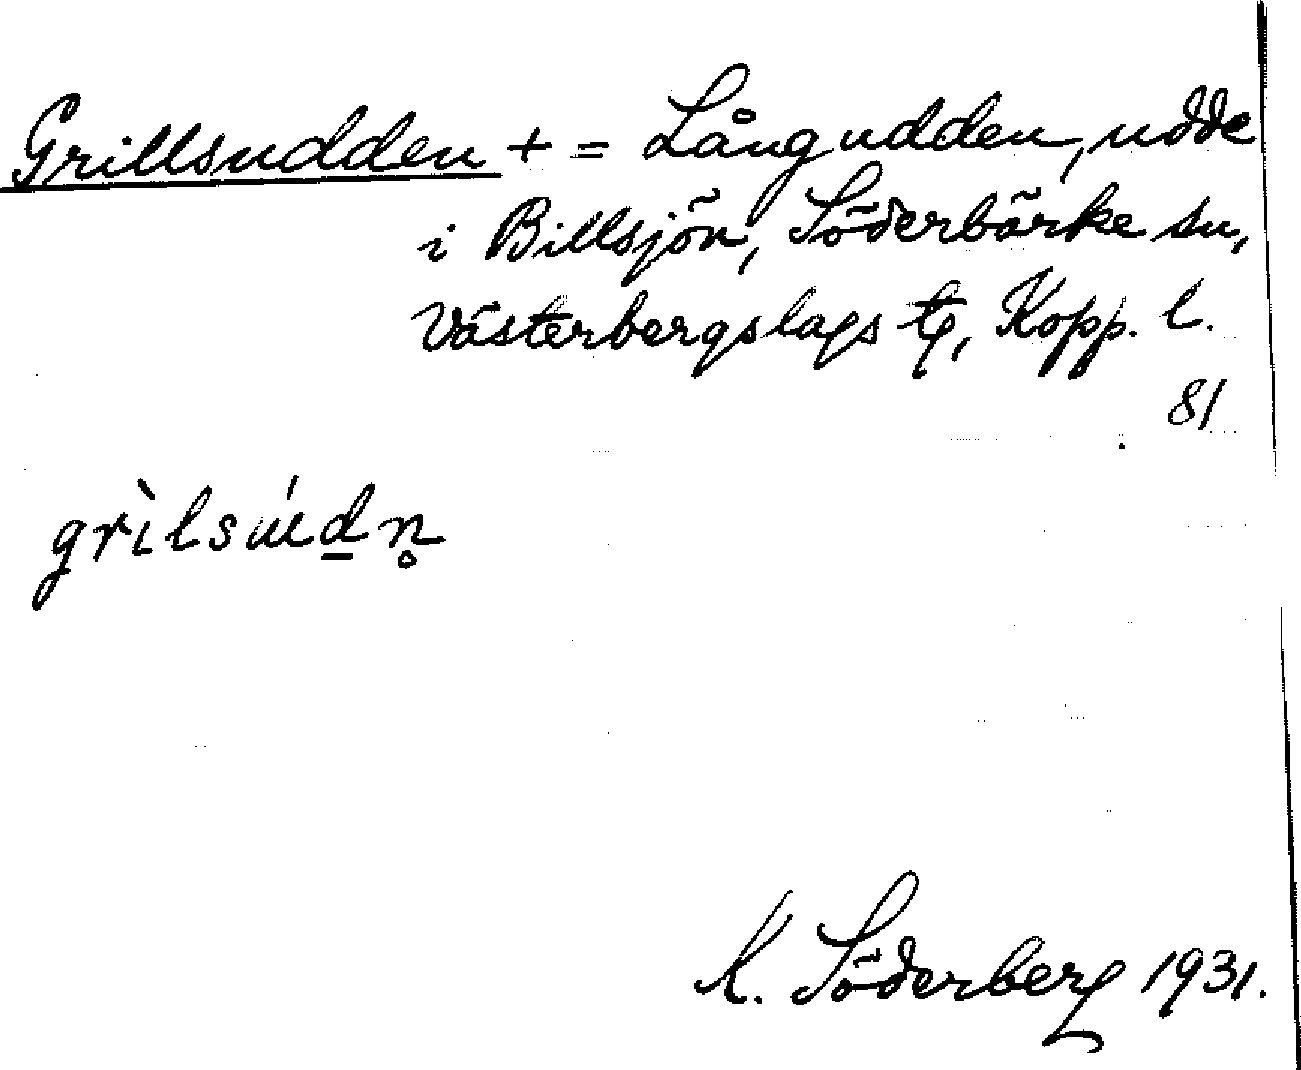 Grillsudden + = Långudden, udde
i Billsjön, Söderbärke sn,
Västerbergslags tg, Kopp. l.
81
grìlsúdn̥
K. Söderberg 1931.